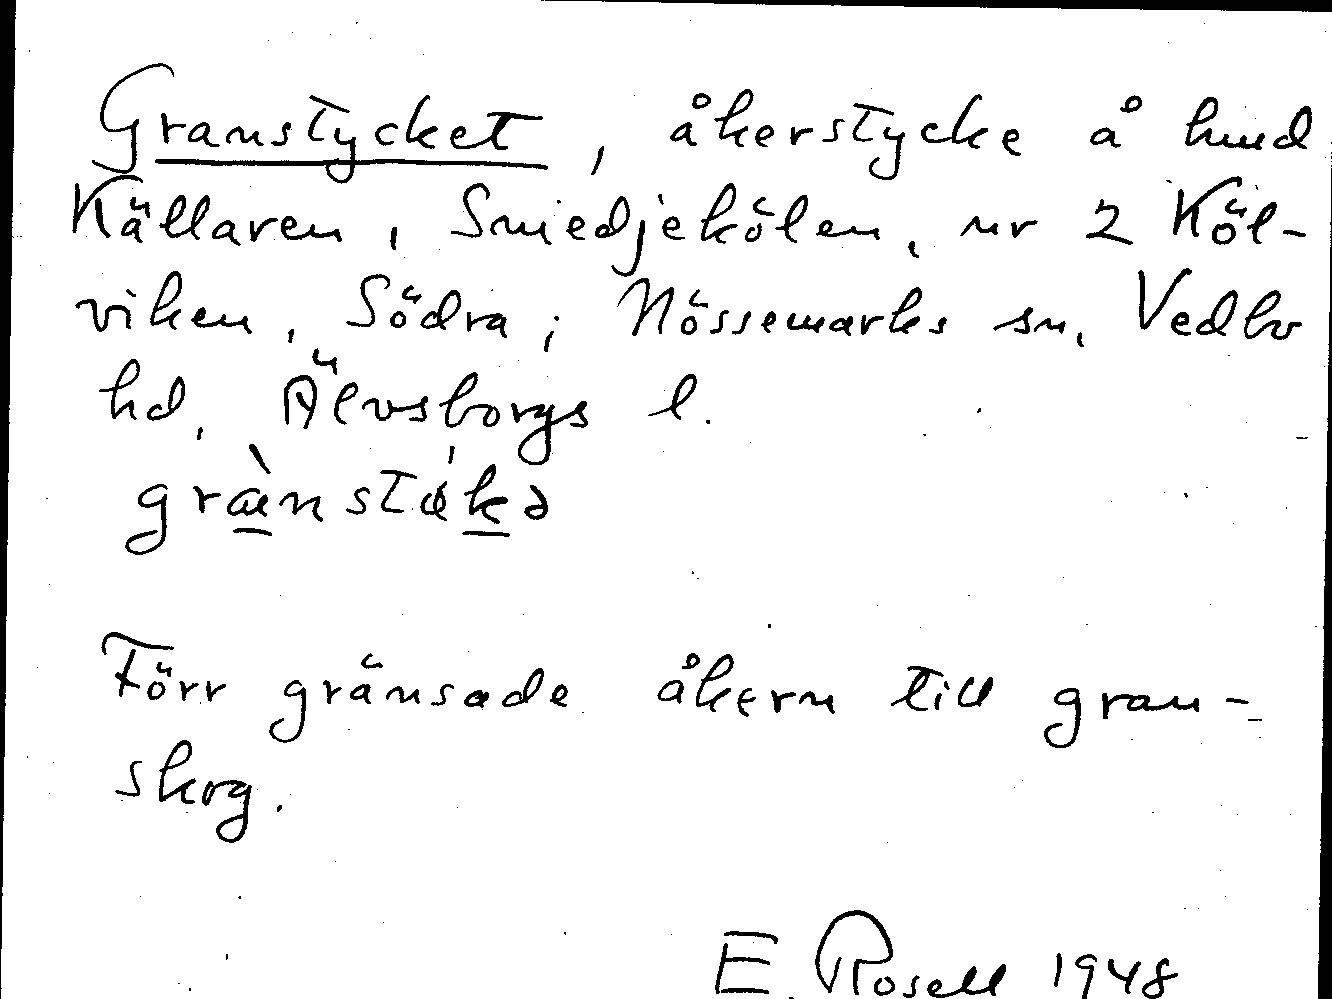 Granstycket, åkerstycke å hmd
Källaren, Smedjekölen, nr 2 Köl-
viken, Södra; Nössemarks sn, Vedbo
hd, Älvsborgs l.
Förr gränsade åkern till gran-
skog.
E. Rosell 1948